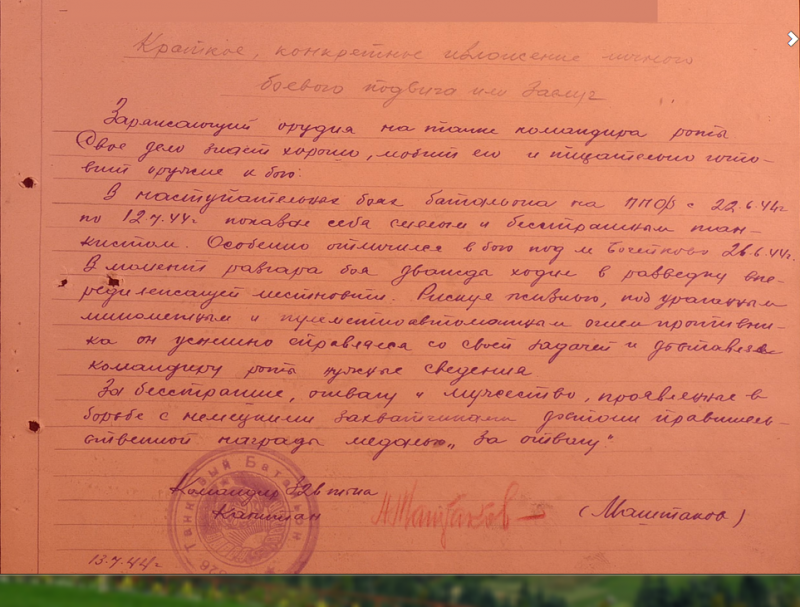 Краткое, конкретное изложение личного
боевого подвига или заслуг
Заряжающий орудия на танке командира роты
Свое дело знает хорошо, любит его и тщательно гото-
вит оружие к бою.
В наступательных боях батальона на с 22.6.44г
по 12.7.44г показал себя смелым и бесстрашным тан-
кистом. Особенно отличился в бою под м 26.6.44г.
В момент разгара боя дважды ходил в разведку впе-
редилежащей местности. Рискуя жизнью, под ураганным
минометным и пулеметноавтоматным огнем противни-
ка он успешно справлялся со своей задачей и доставлял
командиру роты нужные сведения
За бесстрашие, отвагу и мужество, проявленные в
борьбе с немецкими захватчиками достоин правитель-
ственной награды медалью „За отвагу"
Танковый Батальон
Командир
Капитан (Маштаков)
13.7.44г